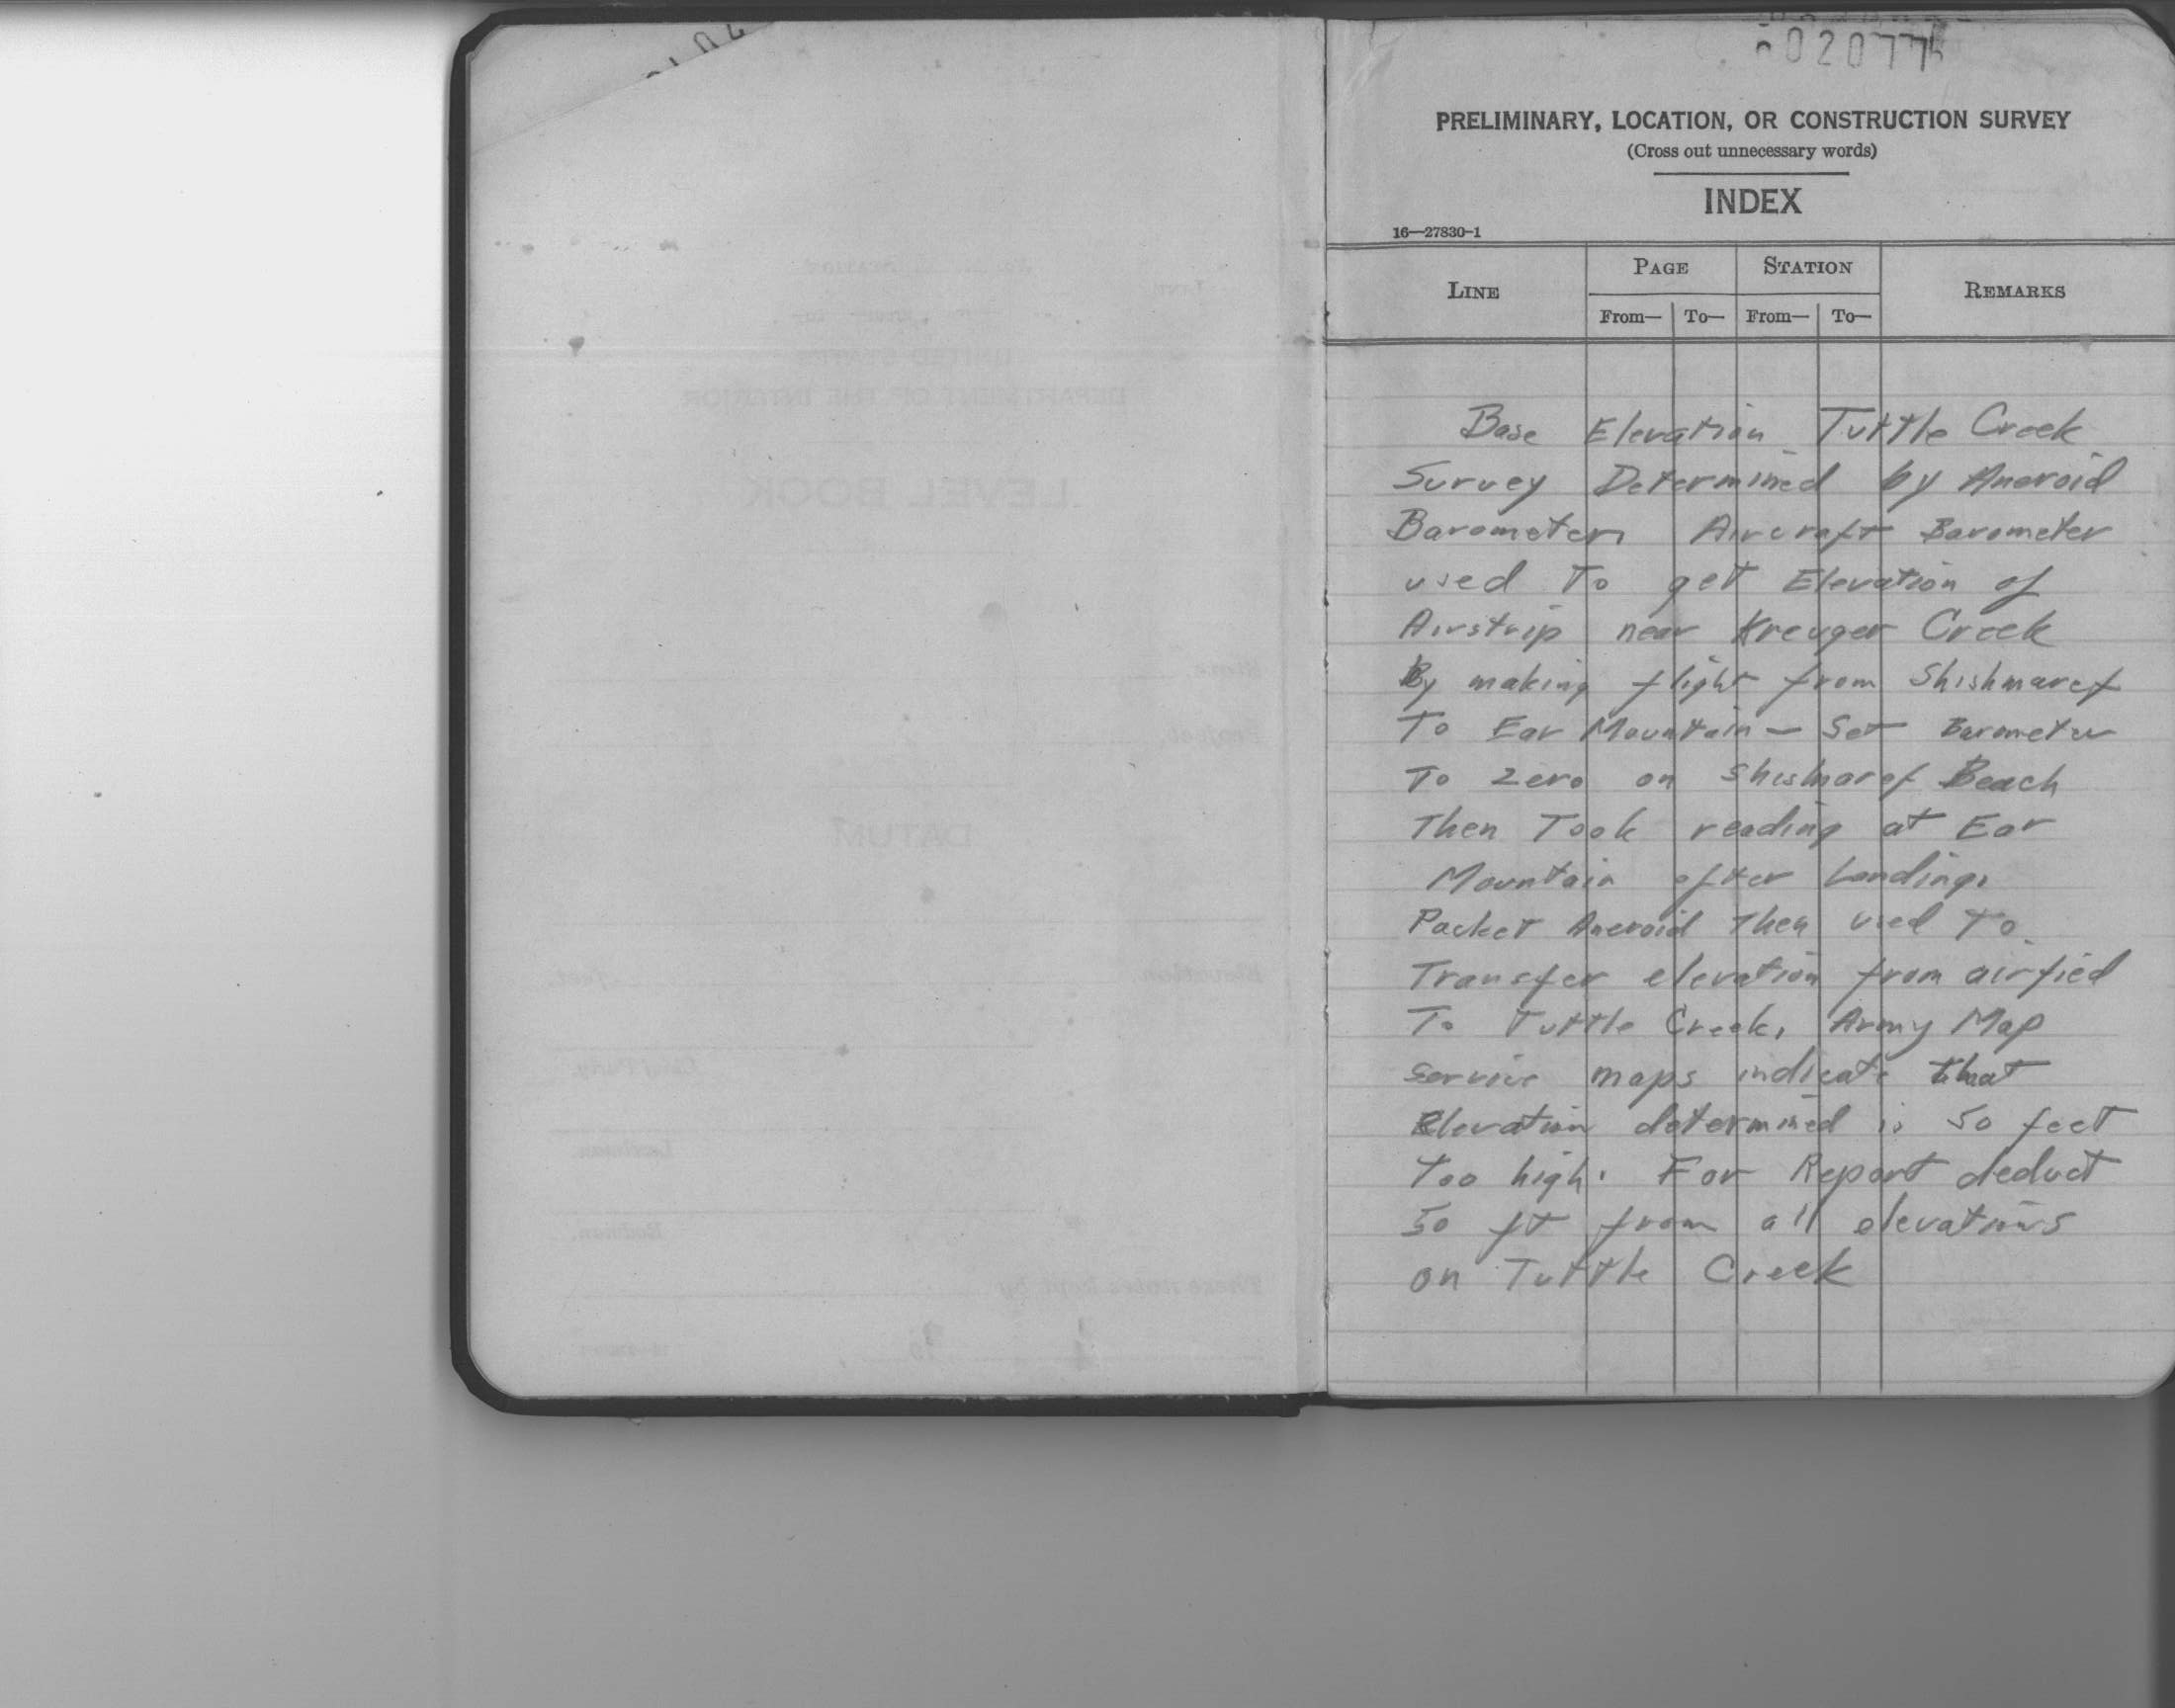 020775
PRELIMINARY, LOCATION, OR CONSTRUCTION SURVEY
(Cross out unnecessary words)
INDEX
16—27830-1
LINE PAGE STATION REMARKS
From— To— From— To—
Base Elevation Tuttle Creek
Survey Determined by Aneroid
Barometer, Aircraft Barometer
used To get Elevation of
Airstrip near Kreuger Creek
By making flight from Shishmaref
To Ear Mountain - Set Barometer
To Zero on Shishmaref Beach
Then Took reading at Ear
Mountain after Landing.
Packet Aneroid Then used To
Transfer elevation from airfied
To Tuttle Creek, Army Map
service maps indicate that
Elevation determined is 50 feet
Too high. For Report deduct
50 ft from all elevations
on Tuttle Creek
UNITED STATES
DEPARTMENT OF THE INTERIOR
LEVEL BOOK
DATUM